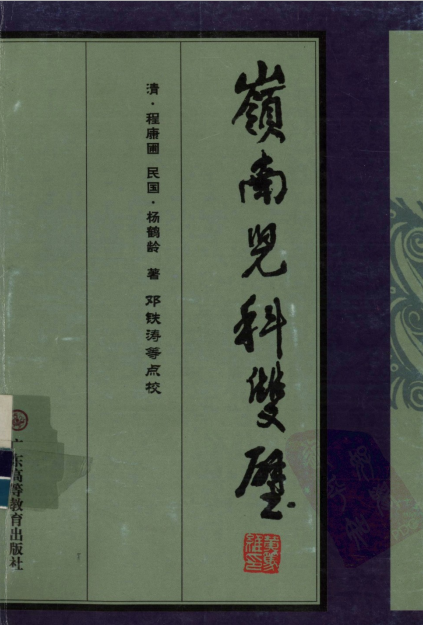 嶺南兒科雙璧
清·程康圃 民国·杨鹤龄 著 邓铁涛等点校
广东高等教育出版社